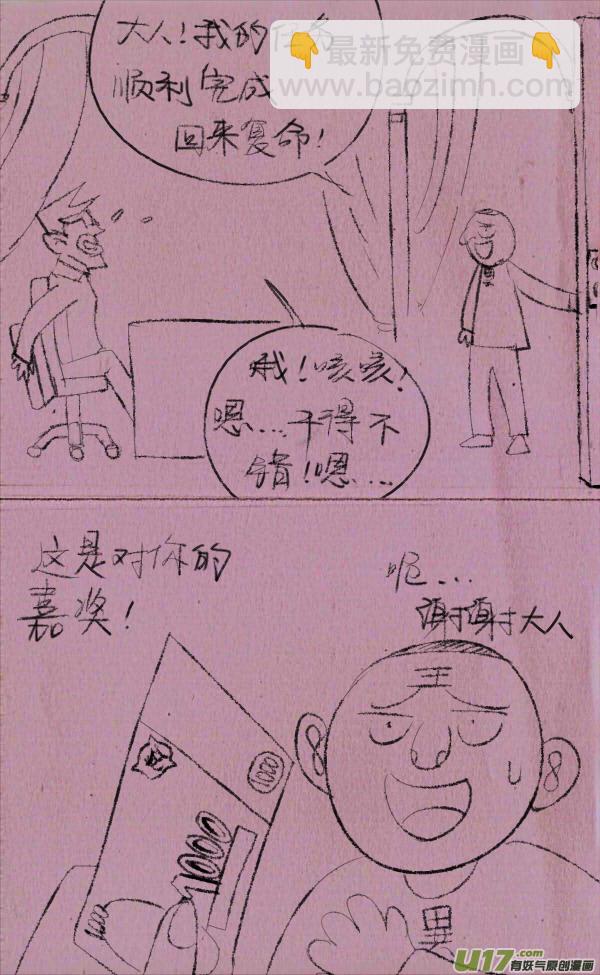 最新免费漫画
www.baozimh.com
大人!我的任务
顺利完成
回来复命!
哦!咳咳!
嗯...干得不
错!嗯....
这是对你的
嘉奖!
呃...
谢谢大人
王
1000
1000
1000
異
U17.com
有妖气原创漫画